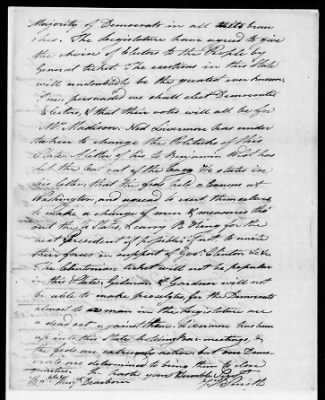 Majority of Democrats in all its bran
ches. The Legislature have agreed to give
the choice of Electors to the People by
General ticket. The exertions in this State
will undoubtedly be the greatest ever known,
I am persuaded we shall elect Democratic
Electors, & that their votes will all be for
Mr Madison. Ned Livermore has under
taken to change the Politicks of this
State. A letter of his to Benjamin West has
let the Cat out of the bag. He states in
his letter, that the feds held a caucus at
Washington, and agreed to exert themselves
to make a change of men & measures thro
out the States, & carry R King for the
next President if possible, if not to unite
their forces in support of Gov. Clinton &c &c
The Clintonian ticket will not be popular
in this State, Gilman & Gardner will not
be able to make proselytes, for the Democrats
almost to a man in the Legislature are
a dead set against them. Livermore has been
up into this State to meetings, &
the feds are extremely active but our Demo
crats are determined to bring them to close
quarters. In haste your Humble Servt
Maj. Dearborn J. Smith